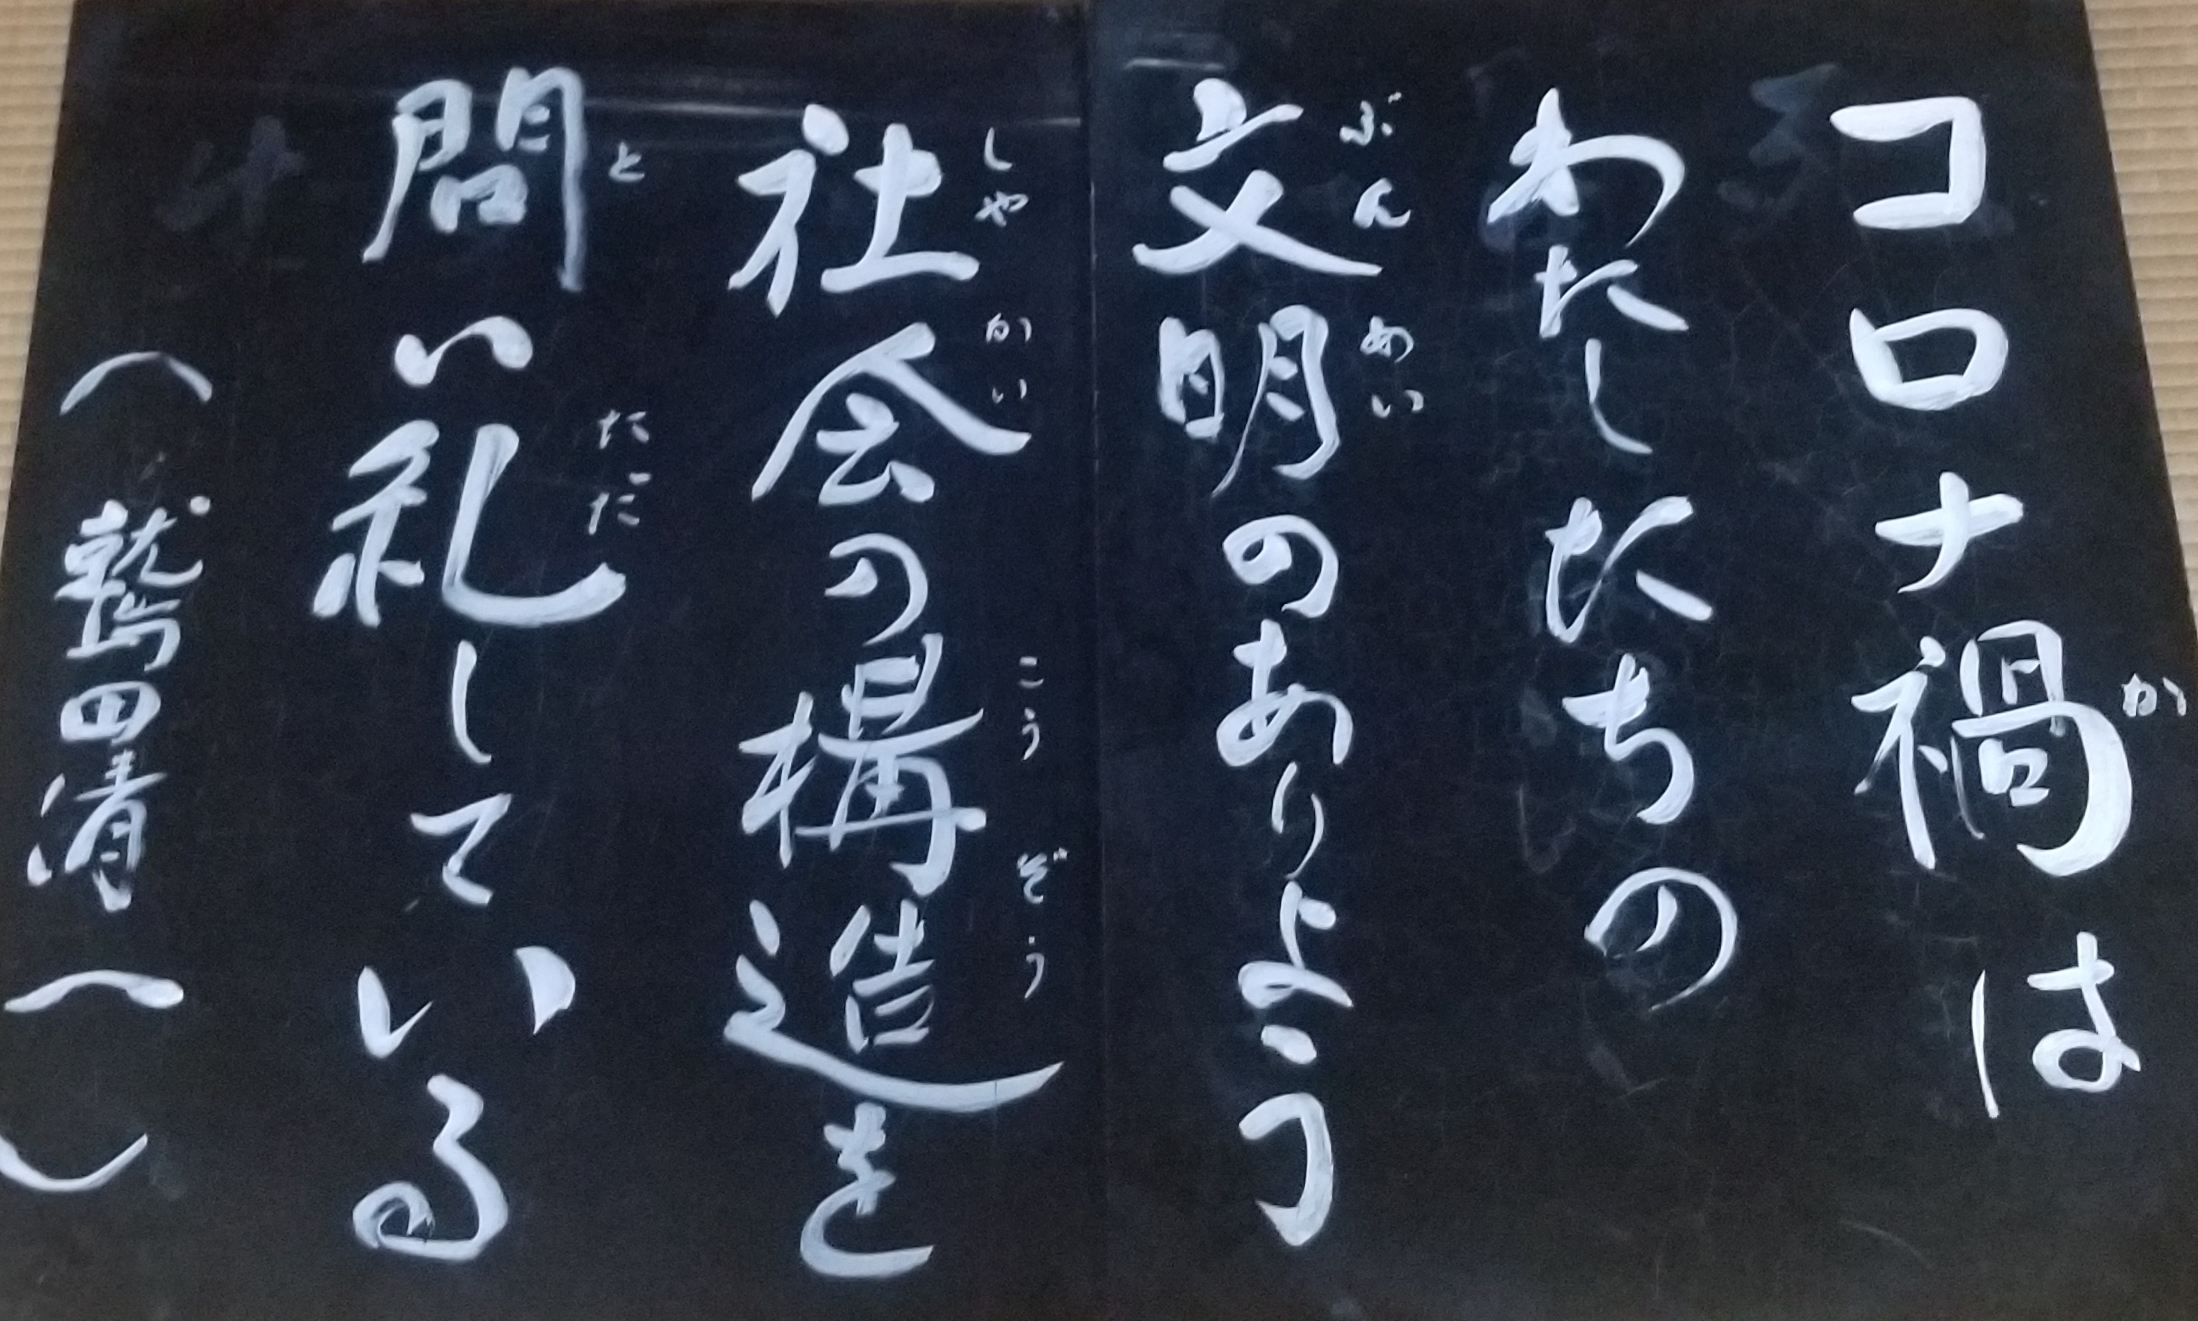 か
コロナ禍は
わたしたちの
ぶんめい
文明のありよう
しゃかい こうぞう
社会の構造を
と ただ
問い糺している
(鷲田清一)